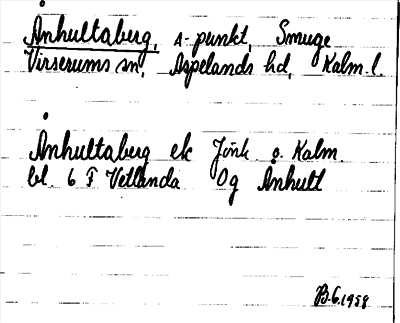 Ånhultaberg, △-punkt, Smuge
Virserums sn, Aspelands hd, Kalm. l.
Ånhultaberg ek Jönk o. Kalm.
bl. 6 F Vetlanda Og Ånhult
B.G. 1958